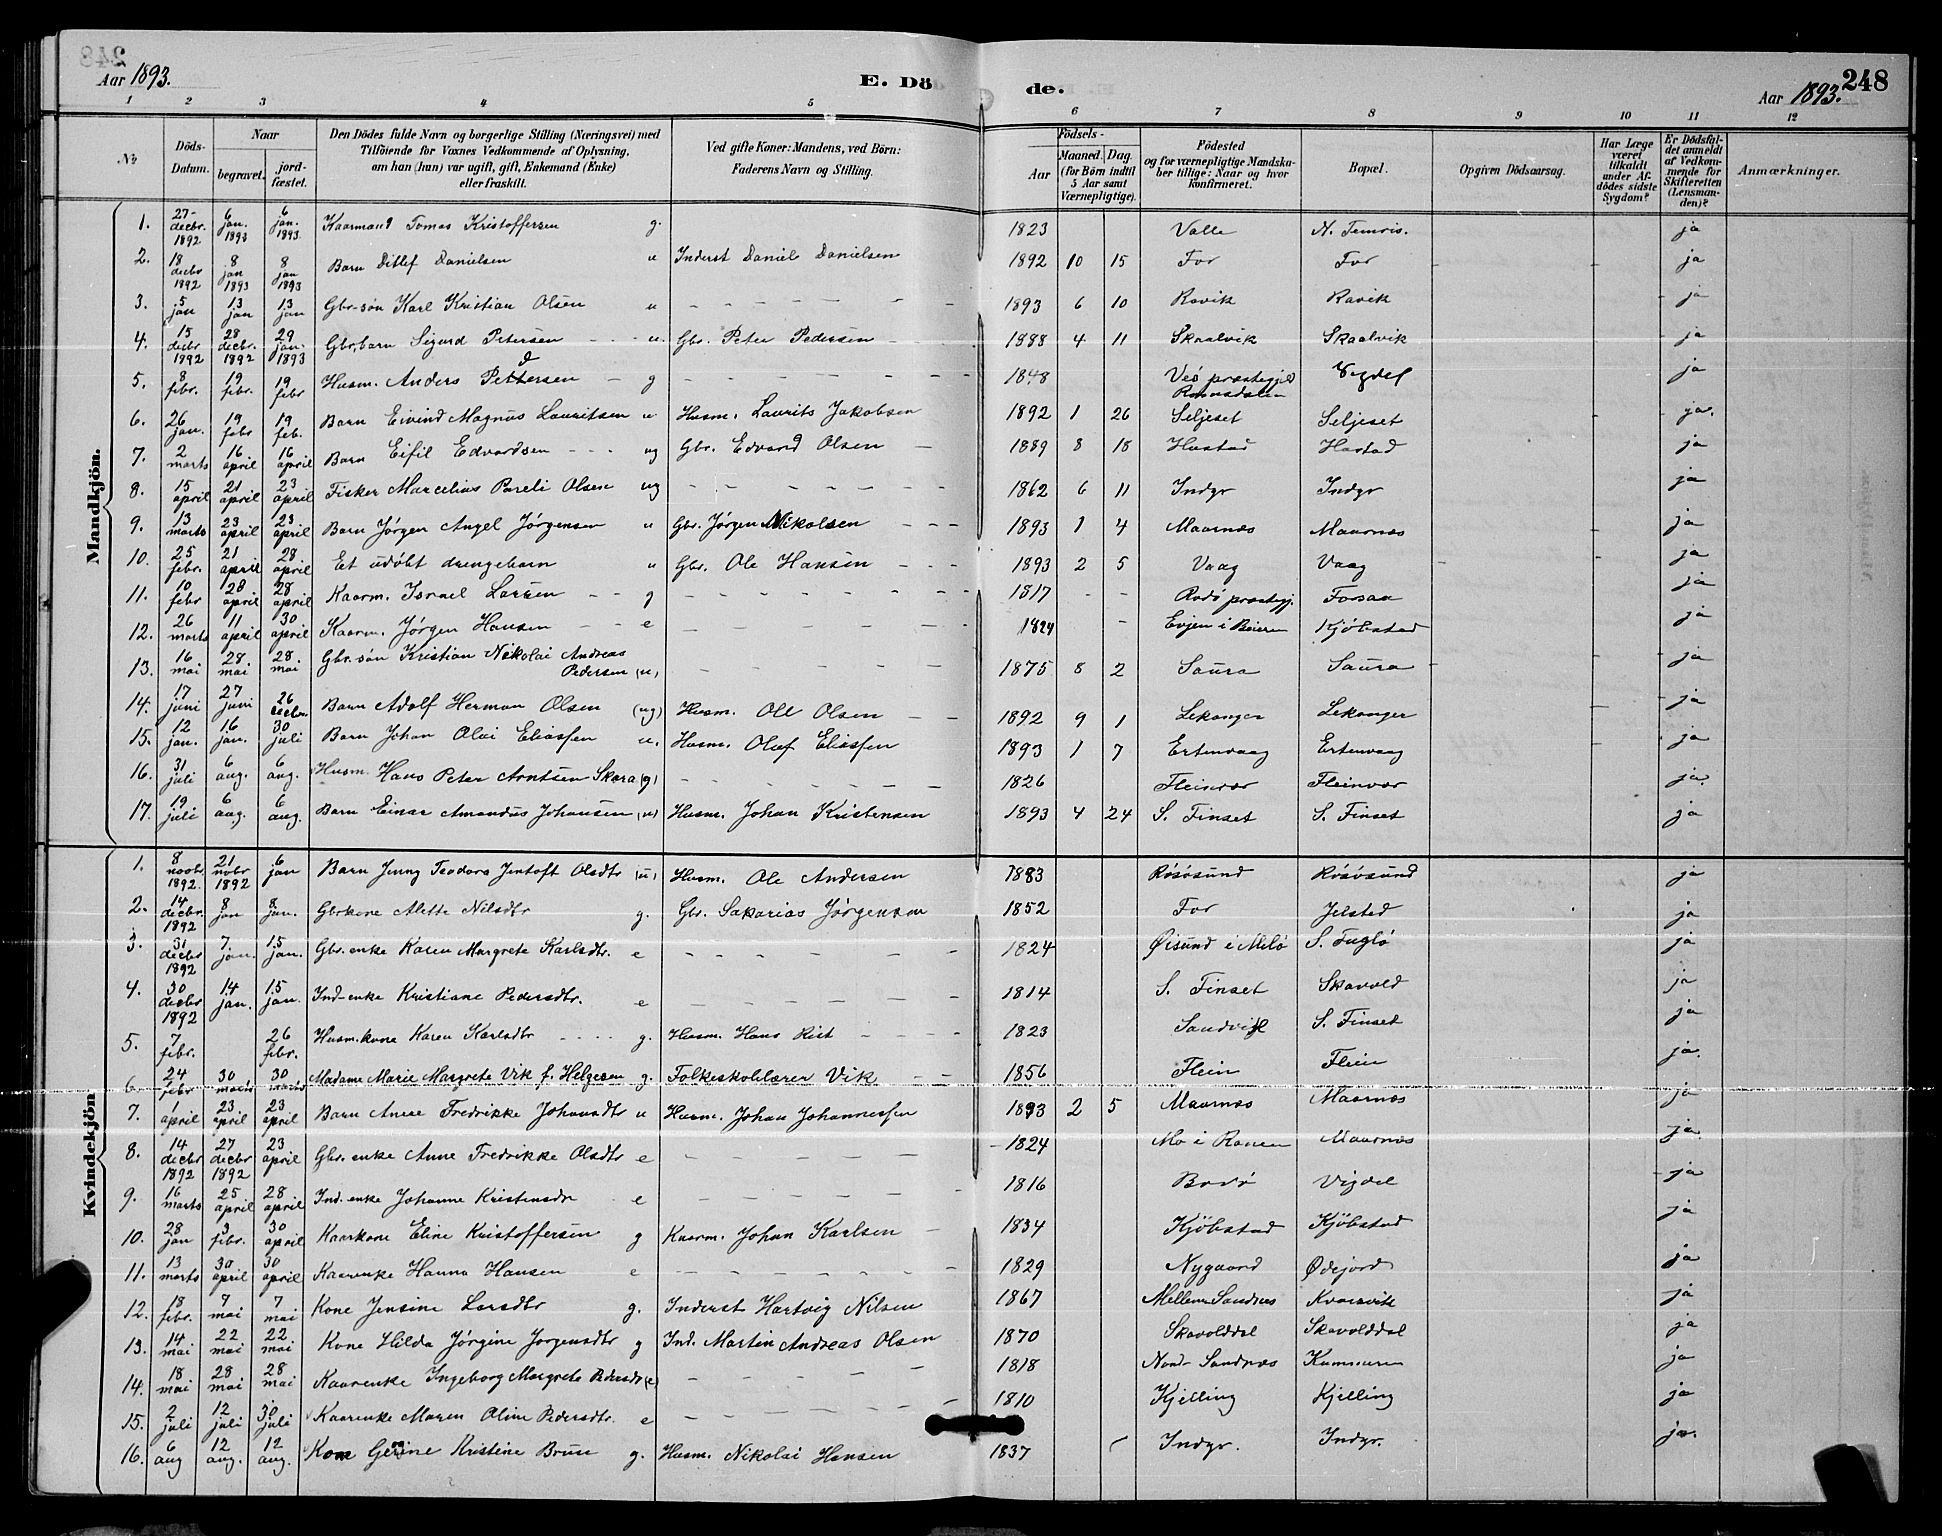 248
Aar 1893.
E. Döde.
Aar 1893.
1 2 3 4 5 6 7 8 9 10 11 12
№
Döds-Datum.
Naar
begravet.
jordfæstet.
Den Dödes fulde Navn og borgerlige Stilling (Næringsvei) med Tilföiende for Voxnes Vedkommende af Oplysning, om han (hun) var ugift, gift, Enkemand (Enke) eller fraskilt.
Ved gifte Koner: Mandens, ved Börn: Faderens Navn og Stilling.
Födsels-
Aar
Maaned. Dag.
(for Börn indtil 5 Aar samt Værnepligtige).
Födested og for værnepligtige Mandskaber tillige: Naar og hvor konfirmeret.
Bopæl.
Opgiven Dödsaarsag.
Har Læge været tilkaldt under Afdödes sidste Sygdom?
Er Dödsfaldet anmeldt af Vedkommende for Skifteretten (Lensmanden)?
Anmærkninger.
Mandkjön.
1. 27 decbr. 1892 6 jan. 1893 6 jan. 1893 Kaarmand Tomas Kristoffersen g. 1823 Valle N. Temris. ja
2. 18 decbr 1892 8 jan 1893 8 jan 1893 Barn Ditlef Danielsen u Inderst Daniel Danielsen 1892 10 15 For For ja
3. 5 jan 13 jan 13 jan Gbr.søn Karl Kristian Olsen u 1893 6 10 Ravik Ravik ja
4. 15 decbr 1892 28 decbr. 1892 29 jan. 1893 Gbr.barn Sigurd Petersen u. Gbr. Peter Pedersen 1888 4 11 Skaalvik Skaalvik ja
5. 8 febr. 19 febr. 19 febr Husm. Anders Pettersen g 1848 Veö præstegjeld Romsdalen Vigdel ja
6. 26 jan. 19 febr 19 feb. Barn Eivind Magnus Lauritsen u Husm. Laurits Jakobsen 1892 1 26 Seljeset Seljeset ja.
7. 2 marts 16 april 16 april Barn Eifil Edvardsen ug Gbr. Edvard Olsen 1889 8 18 Hustad Hustad ja
8. 15 april 21 april 23 april Fisker Marcelius Pareli Olsen ug 1862 6 11 Indyr Indyr ja
9. 13 marts 23 april 23 april Barn Jørgen Angel Jørgensen u Gbr. Jørgen Nikolsen 1893 1 4 Maarnæs Maarnæs ja
10. 25 febr. 21 april 28 april Et udøbt drengebarn u Gbr. Ole Hansen 1893 2 5 Vaag Vaag ja
11. 10 febr 28 april 28 april Kaarm. Israel Larsen g 1817 Rødø præstegj. Forsaa ja
12. 26 marts 11 april 30 april Kaarm. Jørgen Hansen e 1824 Evjen i Beieren Kjöbstad ja
13. 16 mai 28 mai 28 mai Gbr.søn Kristian Nikolai Andreas Pedersen (u) 1875 8 2 Saura Saura ja
14. 17 juni 27 juni 26 decbr. Barn Adolf Herman Olsen (ug) Husm. Ole Olsen 1892 9 1 Lekanger Lekanger ja
15. 12 jan. 16 jan. 30 juli Barn Johan Olai Eliassen u. Husm. Olaf Eliassen 1893 1 7 Ertenvaag Ertenvaag ja
16. 31 juli 6 aug. 6 aug. Husm. Hans Peter Arntsen Skara (g) 1826 Fleinvær Fleinvær ja.
17. 19 juli 6 aug. 6 aug. Barn Einar Amandus Johansen (u) Husm. Johan Kristensen 1893 4 24 S. Finset S. Finset ja
Kvindekjön
1. 8 novbr 1892. 21 nobr 1892 6 jan Barn Jenny Teodora Jentoft Olsdtr (u) Husm. Ole Andersen 1883 Røsøsund Røsøsund ja
2. 14 decbr. 1892 8 jan 8 jan. Gbrkone Alette Nilsdtr g. Gbr. Sakarias Jørgensen 1852 For Jelstad ja
3. 31 decbr 1892 7. jan. 15 jan. Gbr.enke Karen Margrete Karlsdtr. e 1824 Øisund i Melö S. Fuglö ja
4. 30 decbr 1892 14 jan. 15 jan. Ind-enke Kristiane Pedersdtr. e 1814 S. Finset Skavold ja
5. 7 febr. 26 febr. Husm.kone Karen Karlsdtr g. Husm. Hans Rist 1823 Sandvik S. Finset ja
6. 24 febr 30 marts 30 marts Madame Marie Margrete Vik f. Helgesen g. Folkeskolelærer Vik 1856 Flein Flein ja.
7. 1 april 23 april 23 april Barn Anne Fredrikke Johansdtr u Husm. Johan Johannessen 1893 2 5 Maarnæs Maarnæs ja
8. 14 decbr 1892 27 decbr 1892 23 april Gbr.enke Anne Fredrikke Olsdtr e 1824 Mo i Ranen Maarnæs ja.
9. 16 marts 25 april 28 april Ind.enke Johanne Kristensdtr e 1816 Bodø Vigdel ja
10. 28 jan 3 febr. 30 april Kaarkone Eline Kristoffersen g Kaarm. Johan Karlsen 1834 Kjöbstad Kjöbstad ja
11. 13 marts 30 april 30 april Kaarenke Hanna Hansen e 1829 Nygaard Ødejord ja
12. 18 febr. 7 mai 7 mai Kone Jensine Larsdtr g. Inderst Hartvig Nilsen 1867 Mellem Sandnes Kvarsvik ja
13. 14 mai 22 mai 22 mai Kone Hilda Jørgine Jørgensdtr g Ind. Martin Andreas Olsen 1870 Skavolddal Skavolddal ja
14. 18 mai 28 mai 28 mai Kaarenke Ingeborg Margrete Pedersdtr (e) 1818 Nordr Sandnæs ja
15. 2 juli 12 juli 30 juli Kaarenke Maren Oline Pedersdtr. e 1810 Kjelling Kjelling ja
16. 6 aug 12 aug. 12 aug. Kone Gerine Kristine Bruse g. Husm. Nikolai Hansen 1837 Indyr. Indyr. ja.